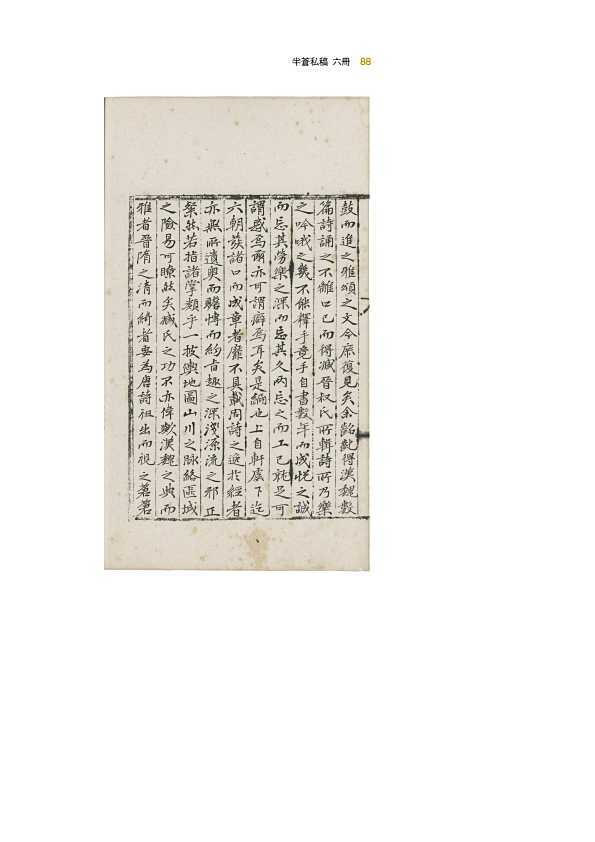 半蒼私稿 六冊 88
鼓而進之雅頌之文今庶復見矣余齠齔得漢魏數
篇詩誦之不離口已而得臧晉叔氏所輯詩所乃樂
之吟哦之幾不能釋手竟手自書數年而成悅之誠
而忘其勞樂之深而忘其久兩忘之而工已訖足可
謂感焉爾亦可謂癖焉耳矣是編也上自軒虞下迄
六朝蔟諸口而成章者靡不具載周詩之逸於經者
亦無所遺奧而賅博而約旨趣之深淺源流之邪正
粲然若指諸掌類乎一披輿地圖山川之脉絡區域
之險易可瞭然矣臧氏之功不亦偉歟漢魏之典而
雅者晉隋之清而綺者要為唐詩祖出而視之蒼蒼